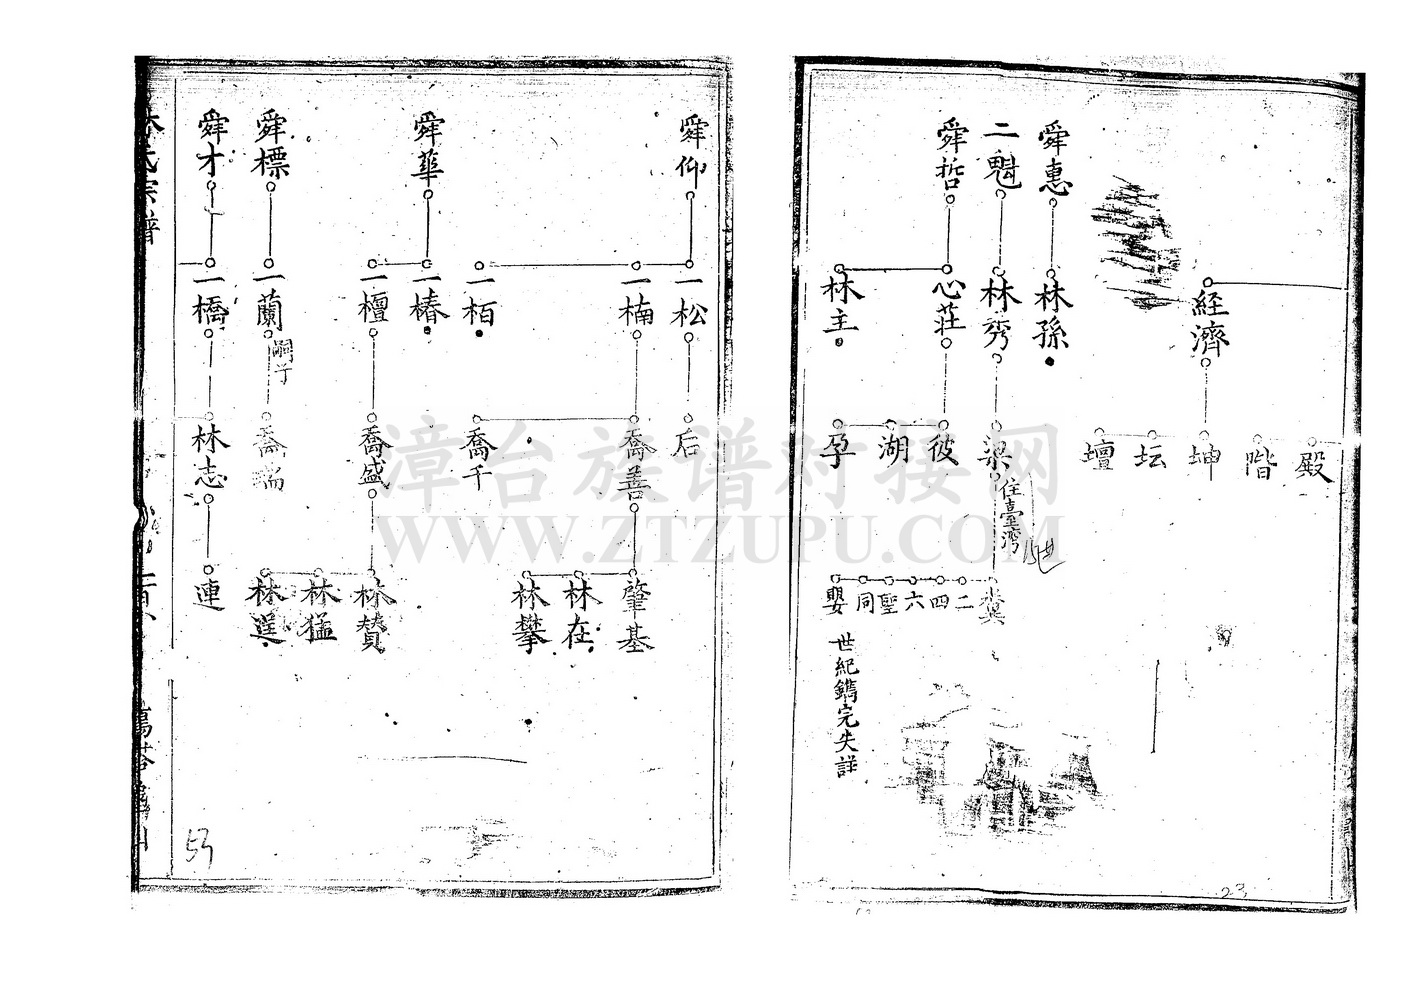 経濟
殿
階
坤
坛
壇
舜惠
林孫
二魁
林秀
梁
住臺灣
冀
二
四
六
聖
同
嬰
世紀鐫完失註
舜哲
心莊
林主
彼
湖
孕
23
舜仰
一松
一楠
一栢
后
喬善
喬千
肇基
林在
林攀
舜華
一椿
一檀
喬盛
林賛
林猛
林逞
舜標
一蘭
嗣子
喬瑞
舜才
一橋
林志
連
林氏宗譜
53
漳台族谱对接网
WWW.ZTZUPU.COM